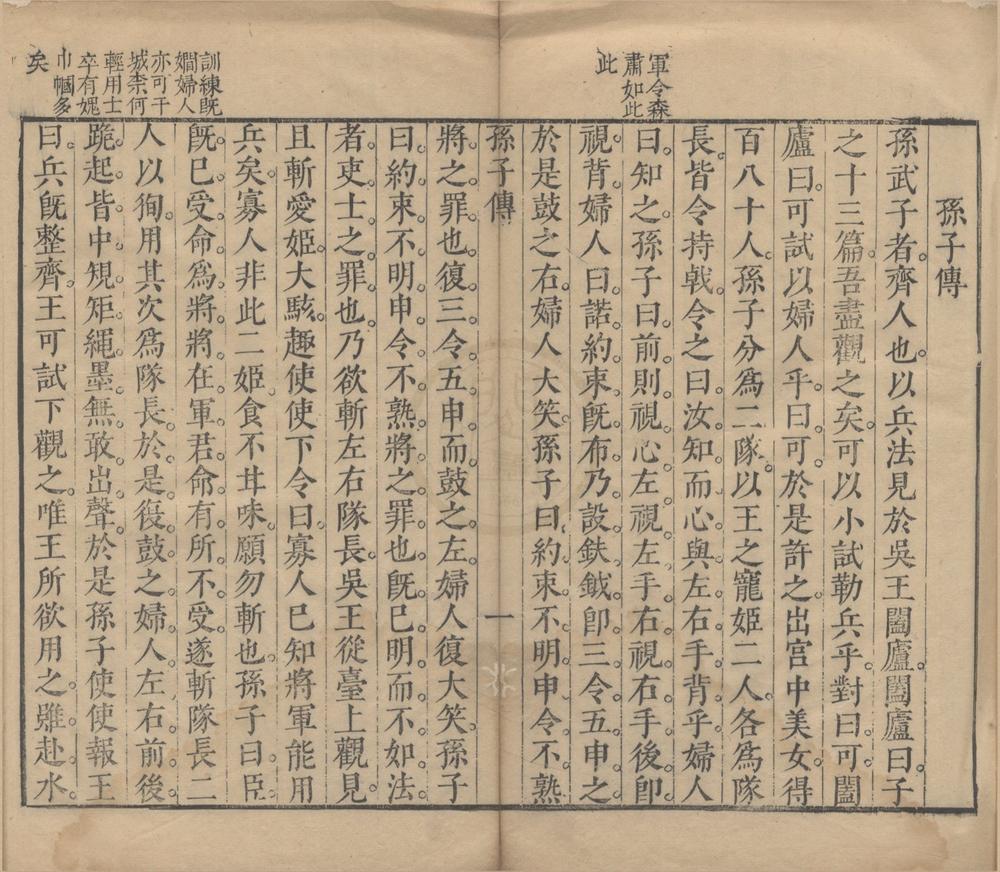 孫子傳
孫武子者。齊人也。以兵法見於吳王闔廬。闔廬曰。子
之十三篇。吾盡觀之矣。可以小試勒兵乎。對曰。可。闔
廬曰。可試以婦人乎。曰。可。於是許之。出宮中美女。得
百八十人。孫子分爲二隊。以王之寵姬二人。各爲隊
長。皆令持戟。令之曰。汝知而心與左右手背乎。婦人
曰。知之。孫子曰。前則視心。左視左手。右視右手。後卽
視背。婦人曰。諾。約束旣布。乃設鈇鉞。卽三令五申之。
於是鼓之右。婦人大笑。孫子曰。約束不明。申令不熟
軍令森
肅如此
此
孫子傳
一
將之罪也。復三令五申。而鼓之左。婦人復大笑。孫子
曰。約束不明。申令不熟。將之罪也。旣已明。而不如法
者。吏士之罪也。乃欲斬左右隊長。吳王從臺上觀。見
且斬愛姬。大駭。趣使使下令曰。寡人已知將軍能用
兵矣。寡人非此二姬。食不甘味。願勿斬也。孫子曰。臣
旣已受命爲將。將在軍。君命有所不受。遂斬隊長二
人以徇。用其次爲隊長。於是復鼓之。婦人左右。前後
跪起。皆中規矩繩墨。無敢出聲。於是孫子使使報王
曰。兵旣整齊。王可試下觀之。唯王所欲用之。雖赴水
訓練旣
嫺婦人
亦可干
城柰何
輕用士
卒有媿
巾幗多
矣